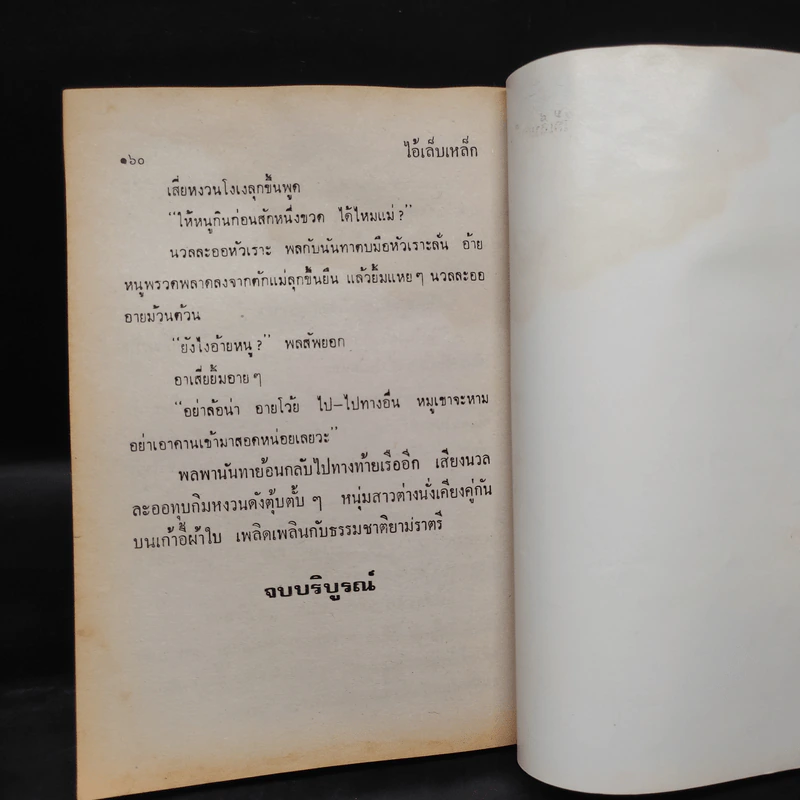 ๑๖๐ ไอ้เล็บเหล็ก
เสี่ยหงวนโงเงลุกขึ้นพูด
"ให้หนูกินก่อนสักหนึ่งขวด ได้ไหมแม่?"
นวลละออหัวเราะ พลกับนันทาตบมือหัวเราะลั่น อ้าย
หนูพรวดพลาดลงจากตักแม่ลุกขึ้นยืน แล้วยิ้มแหยๆ นวลละออ
อายม้วนต้วน
"ยังไงอ้ายหนู?" พลสัพยอก
อาเสี่ยยิ้มอายๆ
"อย่าล้อน่า อายโว้ย ไป—ไปทางอื่น หมูเขาจะหาม
อย่าเอาคานเข้ามาสอดหน่อยเลยวะ"
พลพานันทาย้อนกลับไปทางท้ายเรืออีก เสียงนวล
ละออทุบกิมหงวนดังตุ้บตั้บ ๆ หนุ่มสาวต่างนั่งเคียงคู่กัน
บนเก้าอี้ผ้าใบ เพลิดเพลินกับธรรมชาติยามราตรี
จบบริบูรณ์